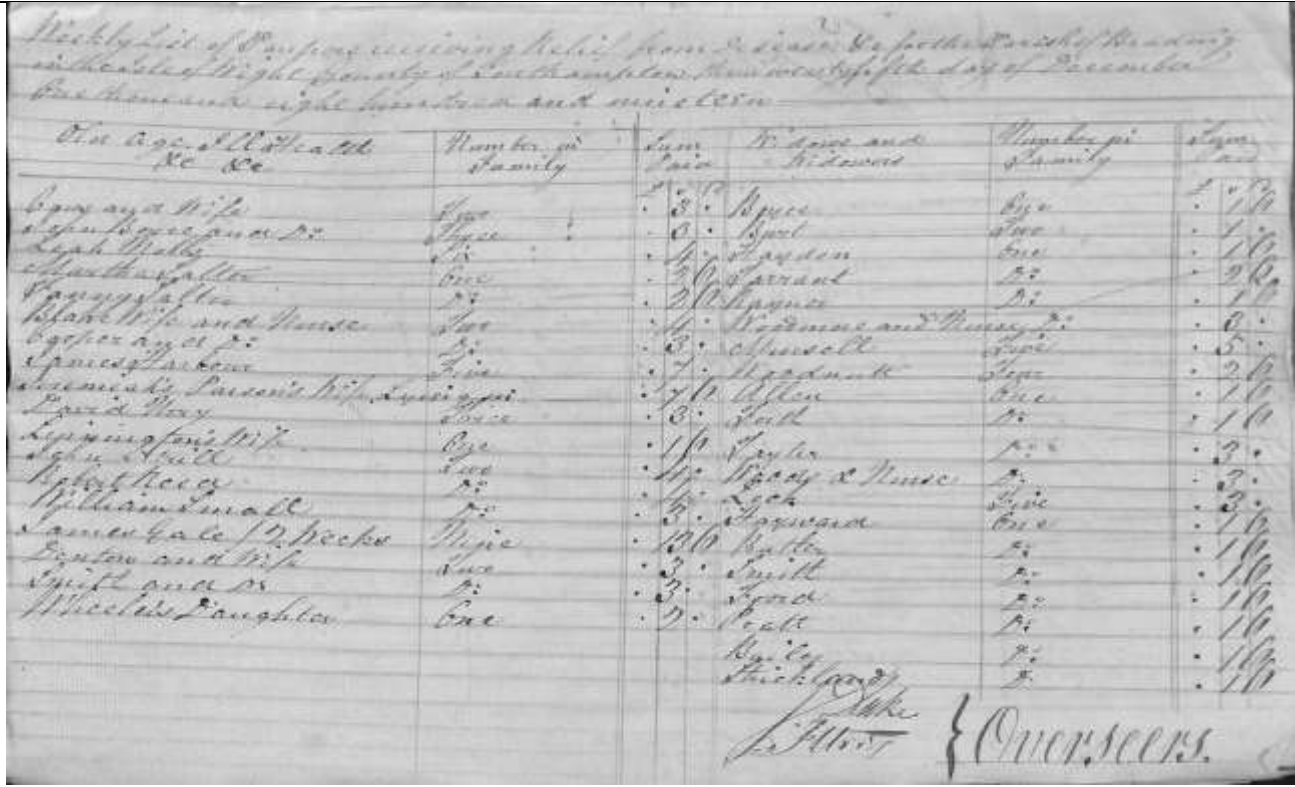 Weekly List of Paupers receiving Relief from Disease &c for the Parish of Brading
in the Isle of Wight County of Southampton this twentyfifth day of December
One thousand eight hundred and nineteen
Old Age Ill Health &c &c | Number in Family | Sum Paid | Widows and Widowers | Number in Family | Sum Paid
and Wife | Two | . 3 . | Boyce | One | . 1 6
John Boyce and Do | Three | . 3 . | Burt | Two | . 1 .
Leah | Six | . 4 . | Haydon | One | . 1 6
Martha Salter | One | . 2 6 | Tarrant | Do | . 2 6
Fanny Salter | Do | . 2 6 | Rayner | Do | . 1 6
Blake Wife and Nurse | Two | . 4 . | and Nurse | Do | . 3 .
Cooper and Do | Do | . 3 . | Munsell | Five | . 5 .
James Harbour | Five | . 7 . | Woodnutt | Four | . 2 6
Jeremiah Parson's Wife | . 7 6 | Allen | One | . 1 6
David | . 3 . | Do | . 1 6
Wife | One | . 1 6 | Taylor | Do | . 3 .
John | Two | . 4 . | Woods & Nurse | Do | . 3 .
Robert | Do | . 4 . | Lock | Five | . 3 .
William Small | Do | . 3 . | Hayward | One | . 1 6
James Gale / 2 Weeks | Nine | . 13 6 | Butler | Do | . 1 6
Denton and Wife | Two | . 3 . | Smith | Do | . 1 6
Smith and Do | Do | . 3 . | Foord | Do | . 1 6
Wheeler's Daughter | One | . 2 . | Do | . 1 6
Baily | Do | . 1 6
Strickland | Do | . 1 6
Overseers.